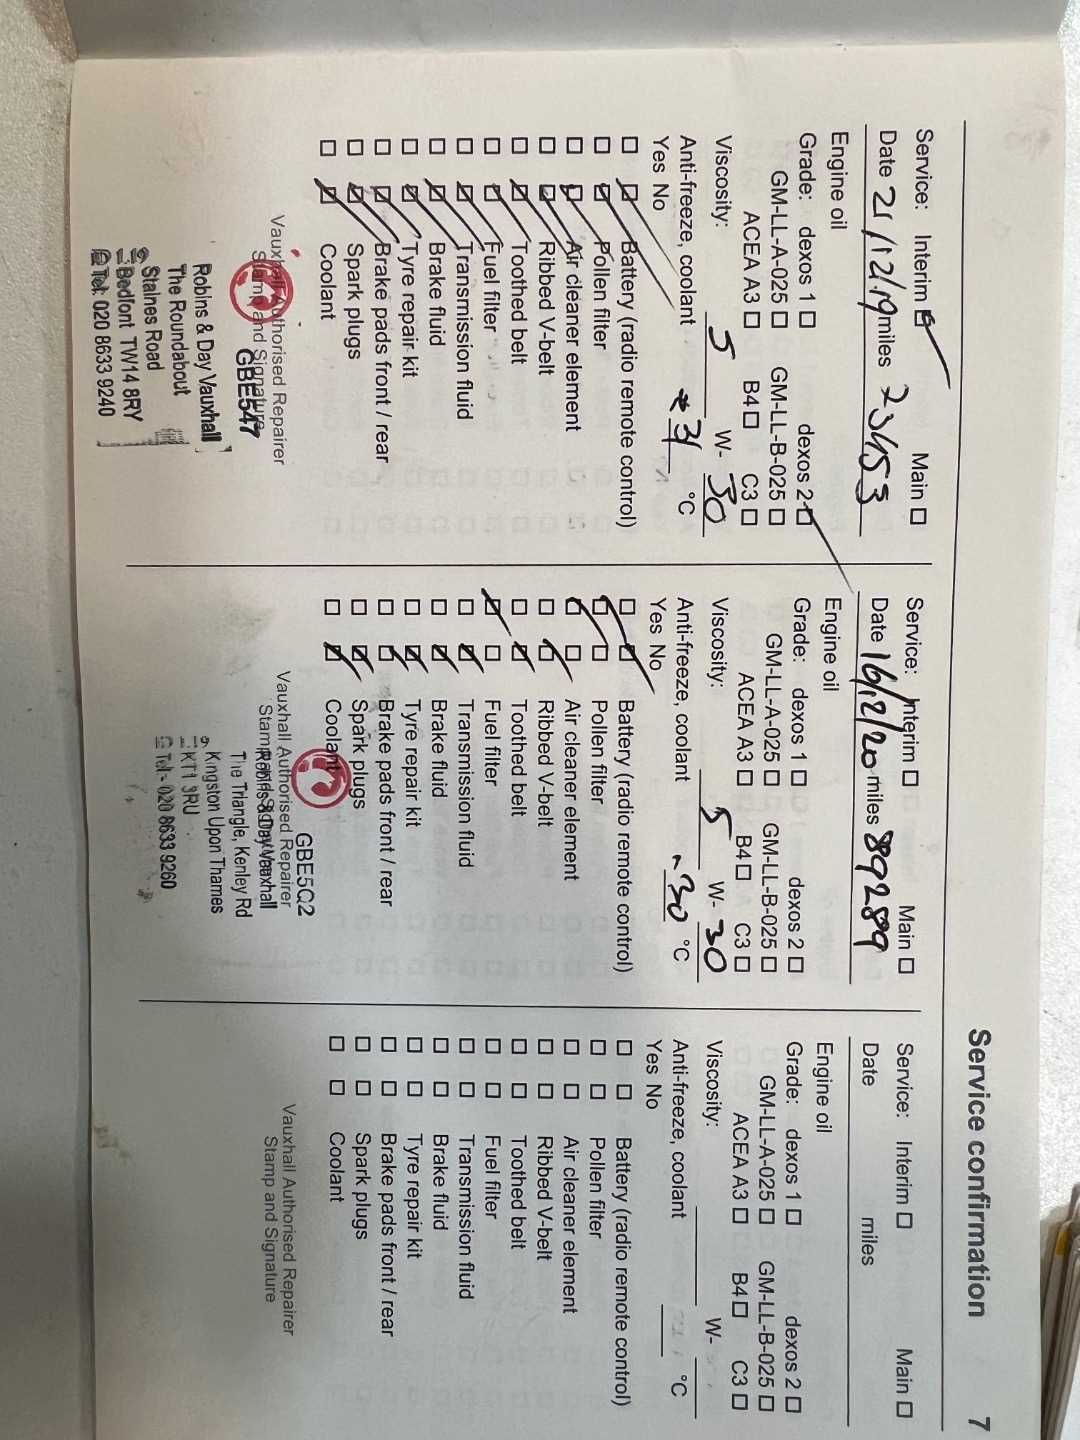 Service confirmation 7
Service: Interim ☑ Main ☐
Date 21/12/19 miles 73453
Engine oil
Grade: dexos 1 ☐ dexos 2 ☑
GM-LL-A-025 ☐ GM-LL-B-025 ☐
ACEA A3 ☐ B4 ☐ C3 ☐
Viscosity: 5 W- 30
Anti-freeze, coolant -31 °C
Yes No
☐ ☑ Battery (radio remote control)
☐ ☑ Pollen filter
☐ ☑ Air cleaner element
☐ ☑ Ribbed V-belt
☐ ☑ Toothed belt
☐ ☑ Fuel filter
☐ ☑ Transmission fluid
☐ ☑ Brake fluid
☐ ☑ Tyre repair kit
☐ ☑ Brake pads front / rear
☐ ☑ Spark plugs
☐ ☑ Coolant
Vauxhall Authorised Repairer
Stamp and Signature
GBE547
Robins & Day Vauxhall
The Roundabout
Staines Road
Bedfont TW14 8RY
Tel: 020 8633 9240
Service: Interim ☐ Main ☐
Date 16/12/20 miles 89289
Engine oil
Grade: dexos 1 ☐ dexos 2 ☐
GM-LL-A-025 ☐ GM-LL-B-025 ☐
ACEA A3 ☐ B4 ☐ C3 ☐
Viscosity: 5 W- 30
Anti-freeze, coolant -30 °C
Yes No
☐ ☑ Battery (radio remote control)
☑ ☐ Pollen filter
☑ ☐ Air cleaner element
☐ ☑ Ribbed V-belt
☐ ☑ Toothed belt
☑ ☐ Fuel filter
☐ ☑ Transmission fluid
☐ ☑ Brake fluid
☐ ☑ Tyre repair kit
☐ ☑ Brake pads front / rear
☐ ☑ Spark plugs
☐ ☑ Coolant
GBE5Q2
Vauxhall Authorised Repairer
Stamp and Signature
Robins & Day Vauxhall
The Triangle, Kenley Rd
Kingston Upon Thames
KT1 3RU
Tel:- 020 8633 9260
Service: Interim ☐ Main ☐
Date miles
Engine oil
Grade: dexos 1 ☐ dexos 2 ☐
GM-LL-A-025 ☐ GM-LL-B-025 ☐
ACEA A3 ☐ B4 ☐ C3 ☐
Viscosity: W-
Anti-freeze, coolant °C
Yes No
☐ ☐ Battery (radio remote control)
☐ ☐ Pollen filter
☐ ☐ Air cleaner element
☐ ☐ Ribbed V-belt
☐ ☐ Toothed belt
☐ ☐ Fuel filter
☐ ☐ Transmission fluid
☐ ☐ Brake fluid
☐ ☐ Tyre repair kit
☐ ☐ Brake pads front / rear
☐ ☐ Spark plugs
☐ ☐ Coolant
Vauxhall Authorised Repairer
Stamp and Signature